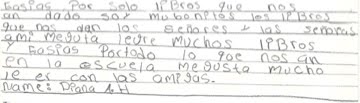 Gasias Por Solo lPBros que nos
an dado sox mubonitos los lPBros
que nos dan las señores y las señoras
ami megusta leere muchos lPBros
y Gasias Partodo lo que nos an
en la escuela megusta mucho
le er con las amigas.
Name: Diana